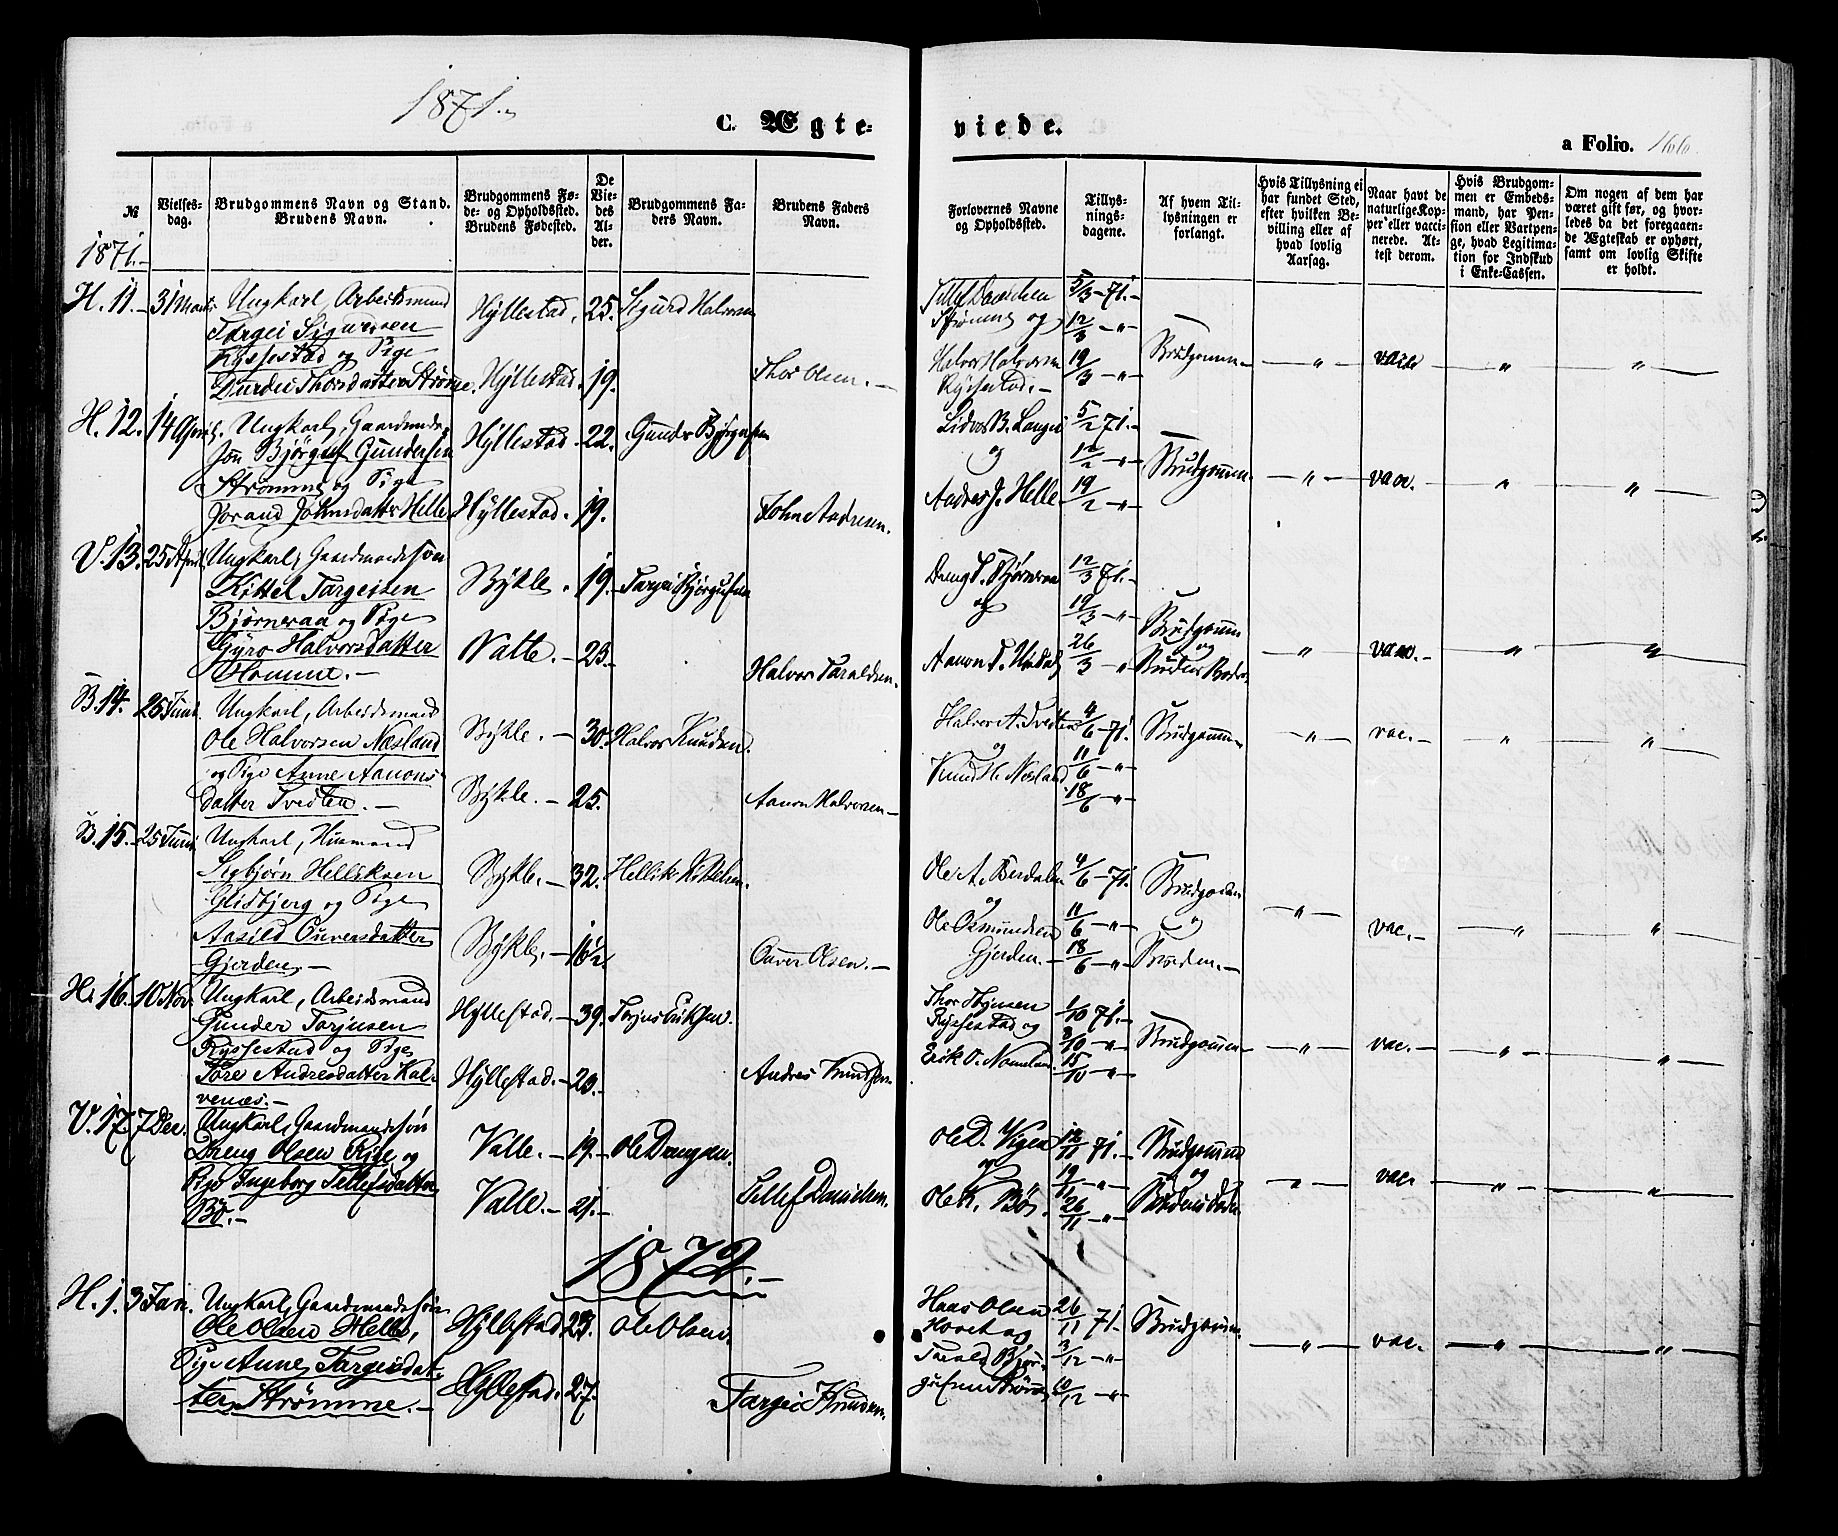 1871.
C. Ægte-
viede.
a Folio. 166.
№
Vielses-
dag.
Brudgommens Navn og Stand.
Brudens Navn.
Brudgommens Fø-
de- og Opholdssted.
Brudens Fødested.
De
Vie-
des
Al-
der.
Brudgommens Fa-
ders Navn.
Brudens Faders
Navn.
Forlovernes Navne
og Opholdssted.
Tillys-
nings-
dagene.
Af hvem Til-
lysningen er
forlangt.
Hvis Tillysning ei
har fundet Sted,
efter hvilken Be-
villing eller af
hvad lovlig
Aarsag.
Naar havt de
naturlige Kop-
per eller vacci-
nerede. At-
test derom.
Hvis Brudgom-
men er Embeds-
mand, har Pen-
sion eller Vartpen-
ge, hvad Legitima-
tion for Indskud
i Enke-Cassen.
Om nogen af dem har
været gift før, og hvor-
ledes da det foregaaen-
de Ægteskab er ophørt,
samt om lovlig Skifte
er holdt.
1871.-
H. 11.- 31 Marts Ungkarl, Arbeidsmand Hyllestad. 25. Sigurd Halvorsen 5/3-71.-
Targei Sigurdsen Strømme og 12/3 - " -
Ryssestad og Pige Halvor Halvorsen 19/3 - " - Brudgommen - " - vacc " "
Durdei Thorsdatter Strømme. Hyllestad. 19. Thor Olsen.- Ryssestad.-
H. 12. 14 April. Ungkarl, Gaardmand Hyllestad. 22. Gunder Bjørgufsen 5/2 71.-
Jon Bjørguf Gundersen og 12/2 - " - Brudgommen. - " - vacc. " "
Strømme og Pige Andres J. Helle 19/2 - " -
Jorand Johnsdatter Helle Hyllestad. 19. John Andresen.
V. 13. 25 April. Ungkarl, Gaardmandssøn Bykle. 19. Targei Bjørgufsen Dreng T. Bjørneraa 12/3 71.-
Kittel Targeisen og 19/3 - " - Brudgommen
Bjørneraa og Pige 26/3 - " og - " - vacc.- " "
Gyro Halvorsdatter Valle.- 23.- Halvor Taraldsen.
Homme.-
B. 14. 25 Juni. Ungkarl, Arbeidsmand Bykle.- 30. Halvor Knudsen. Halvor A. Tveiten 4/6-71. Brudgommen - " - vac.- " "
Ole Halvorsen Næsland og 11/6 - " -
og Pige Anne Aanons- Knud H. Næsland 18/6 - " -
datter Tveiten.- Bykle.- 25. Aanon Halvorsen-
B. 15.- 25 Juni Ungkarl, Husmand Bykle.- 32. Hellik Kittelsen. 4/6-71. Brudgommen
Sigbjørn Helliksen og 11/6 - " - og - " - vac.- " "
Glidbjerg og Pige Ole Osmundsen
Aasild Ouversdatter Bykle,- 16½ Ouver Olsen.- Gjerden.- 18/6 - " Bruden.-
Gjerden.-
H. 16. 10 Nov. Ungkarl, Arbeidsmand Hyllestad.- 39. 1/10 71.-
Gunder Torjusen Ryssestad og 8/10 - " - Brudgommen - " - vac.- " "
Ryssestad og Pige 15/10 - " -
Tore Andresdatter Kal- Hyllestad.- 20. Andres Knudsen
venæs.-
V. 17. 7 Dec. Ungkarl, Gaardmandssøn Valle.- 19.- Ole Drengsen. Ole D. Rige 12/11 71. Brudgommen
Dreng Olsen Rige og og 19/11 - " - og " vac " "
Pige Ingeborg Tellefsdatter Valle.- 21.- Tellef Danielsen. 26/11 - " -
Bø.-
1872.-
H. 1. 3 Jan. Ungkarl, Gaardmandssøn Hyllestad 23. Ole Olsen. Hans Olsen 26/11 71.- Brudgommen.
Ole Olsen Helle, 3/12 - " - " vac. " "
Pige Anne Targeisdat- Hyllestad. 27. Targei Knudsen. Tarald Bjør-
ter Strømme.- gufsen Strømme 10/12 - " -